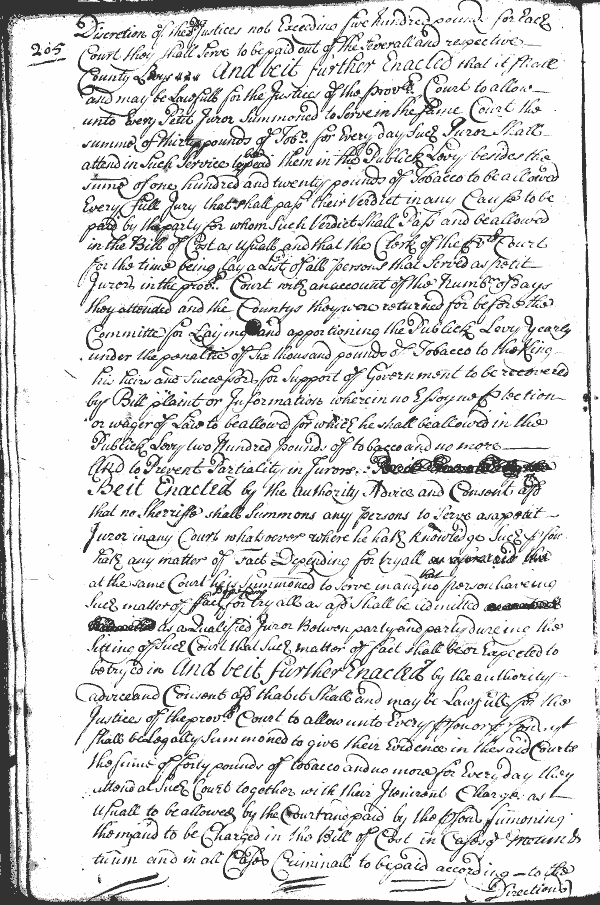 Discretion of the sd Justices not Exceeding five hundred pounds for Each
205
Court they shall Serve to be paid out of the severall and respective
County Levys And be it further Enacted that it shall
and may be Lawfull for the Justices of the provll. Court to allow
unto Every Petit Juror Summoned to Serve in the same Court the
summe of thirty pounds of Tobo. for Every day Such Juror Shall
attend in Such Service to be paid them in the Publick Levy besides the
sume of one hundred and twenty pounds of Tobacco to be allowed
Every full Jury that shall pass their Verdict in any Cause to be
paid by the party for whom Such Verdict Shall Pass and be allowed
in the Bill of Cost as usuall and that the Clerk of the Court
for the time being Lay a List of all persons that Served as petit
Jurors in the provll. Court with an account of the Number of days
they attended and the Countys they were returned for before the
Committe for Laying and apportioning the Publick Levy Yearly
under the penaltie of Six thousand pounds of Tobacco to the King
his heirs and Successors for Support of Government to be recovered
by Bill plaint or Information wherein no Essoyne Protection
or wager of Law to be allowed for which he shall be allowed in the
Publick Levy two Hundred pounds of tobacco and no more
And to Prevent Partiality in Jurors
Be it Enacted by the authority Advice and Consent afsd
that no Sherriffe shall Summons any persons to Serve as a petit
Juror in any Court whatsoever where he hath knowledge Such person
hath any matter of Fact Depending for tryall
at the same Court he is Summoned to Serve in and that no person haveing
Such matter of fact depending for tryall as afsd Shall be admitted
as a Qualified Juror Between party and party dureing the
Sitting of Such Court that Such matter of fact shall be Expected to
be tryed in And be it further Enacted by the authority
advice and Consent afsd that it Shall and may be Lawfull for the
Justices of the provll Court to allow unto Every
shall be Legally Summoned to give their Evidence in the said Courts
the sume of forty pounds of tobacco and no more for Every day they
Attend at Such Court together with their Itinerent Charges as
usuall to be allowed by the Court and paid by the person sumoning
them and to be Charged in the Bill of Cost in Cases of meum &
tuum and in all Cases Criminall to be paid according to the
Directions